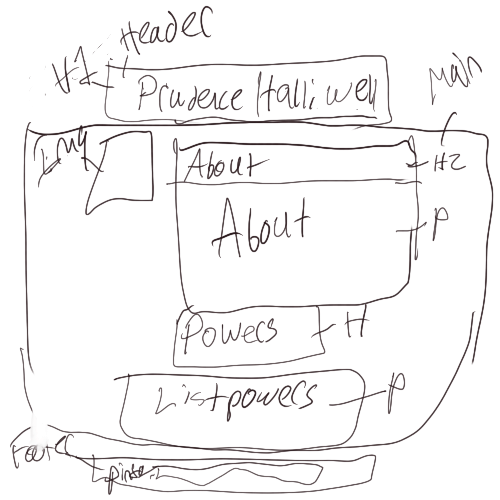 Header
H1
Prudence Halliwell
Main
Img
About
H2
About
P
Powers
H
List powers
P
Footer